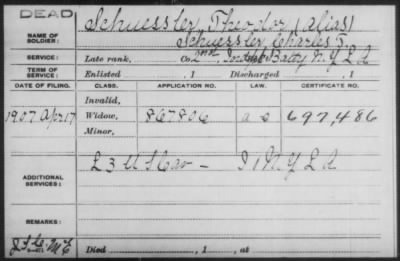 DEAD
Schuessler, Theodor (alias)
NAME OF SOLDIER: Schuessler, Charles T.
SERVICE: Late rank, Co. Indpt. Batty N.Y. L A
TERM OF SERVICE: Enlisted , 1 Discharged , 1
DATE OF FILING. CLASS. APPLICATION NO. LAW. CERTIFICATE NO.
Invalid,
1907 Apr 17 Widow, 867806 697,486
Minor,
ADDITIONAL SERVICES: L 3 U S Cav - I 1 N Y L A
REMARKS:
Died , 1 , at